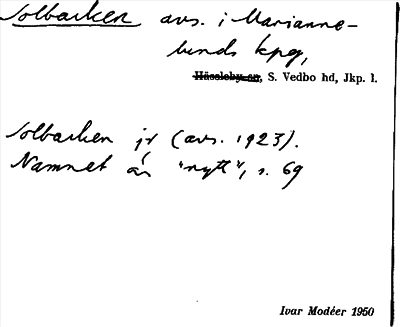 Solbacken avs. i Marianne-
lunds kpg,
Hässleby sn, S. Vedbo hd, Jkp. l.
Solbacken jr (avs. 1923).
Namnet är "nytt", s. 69
Ivar Modéer 1950